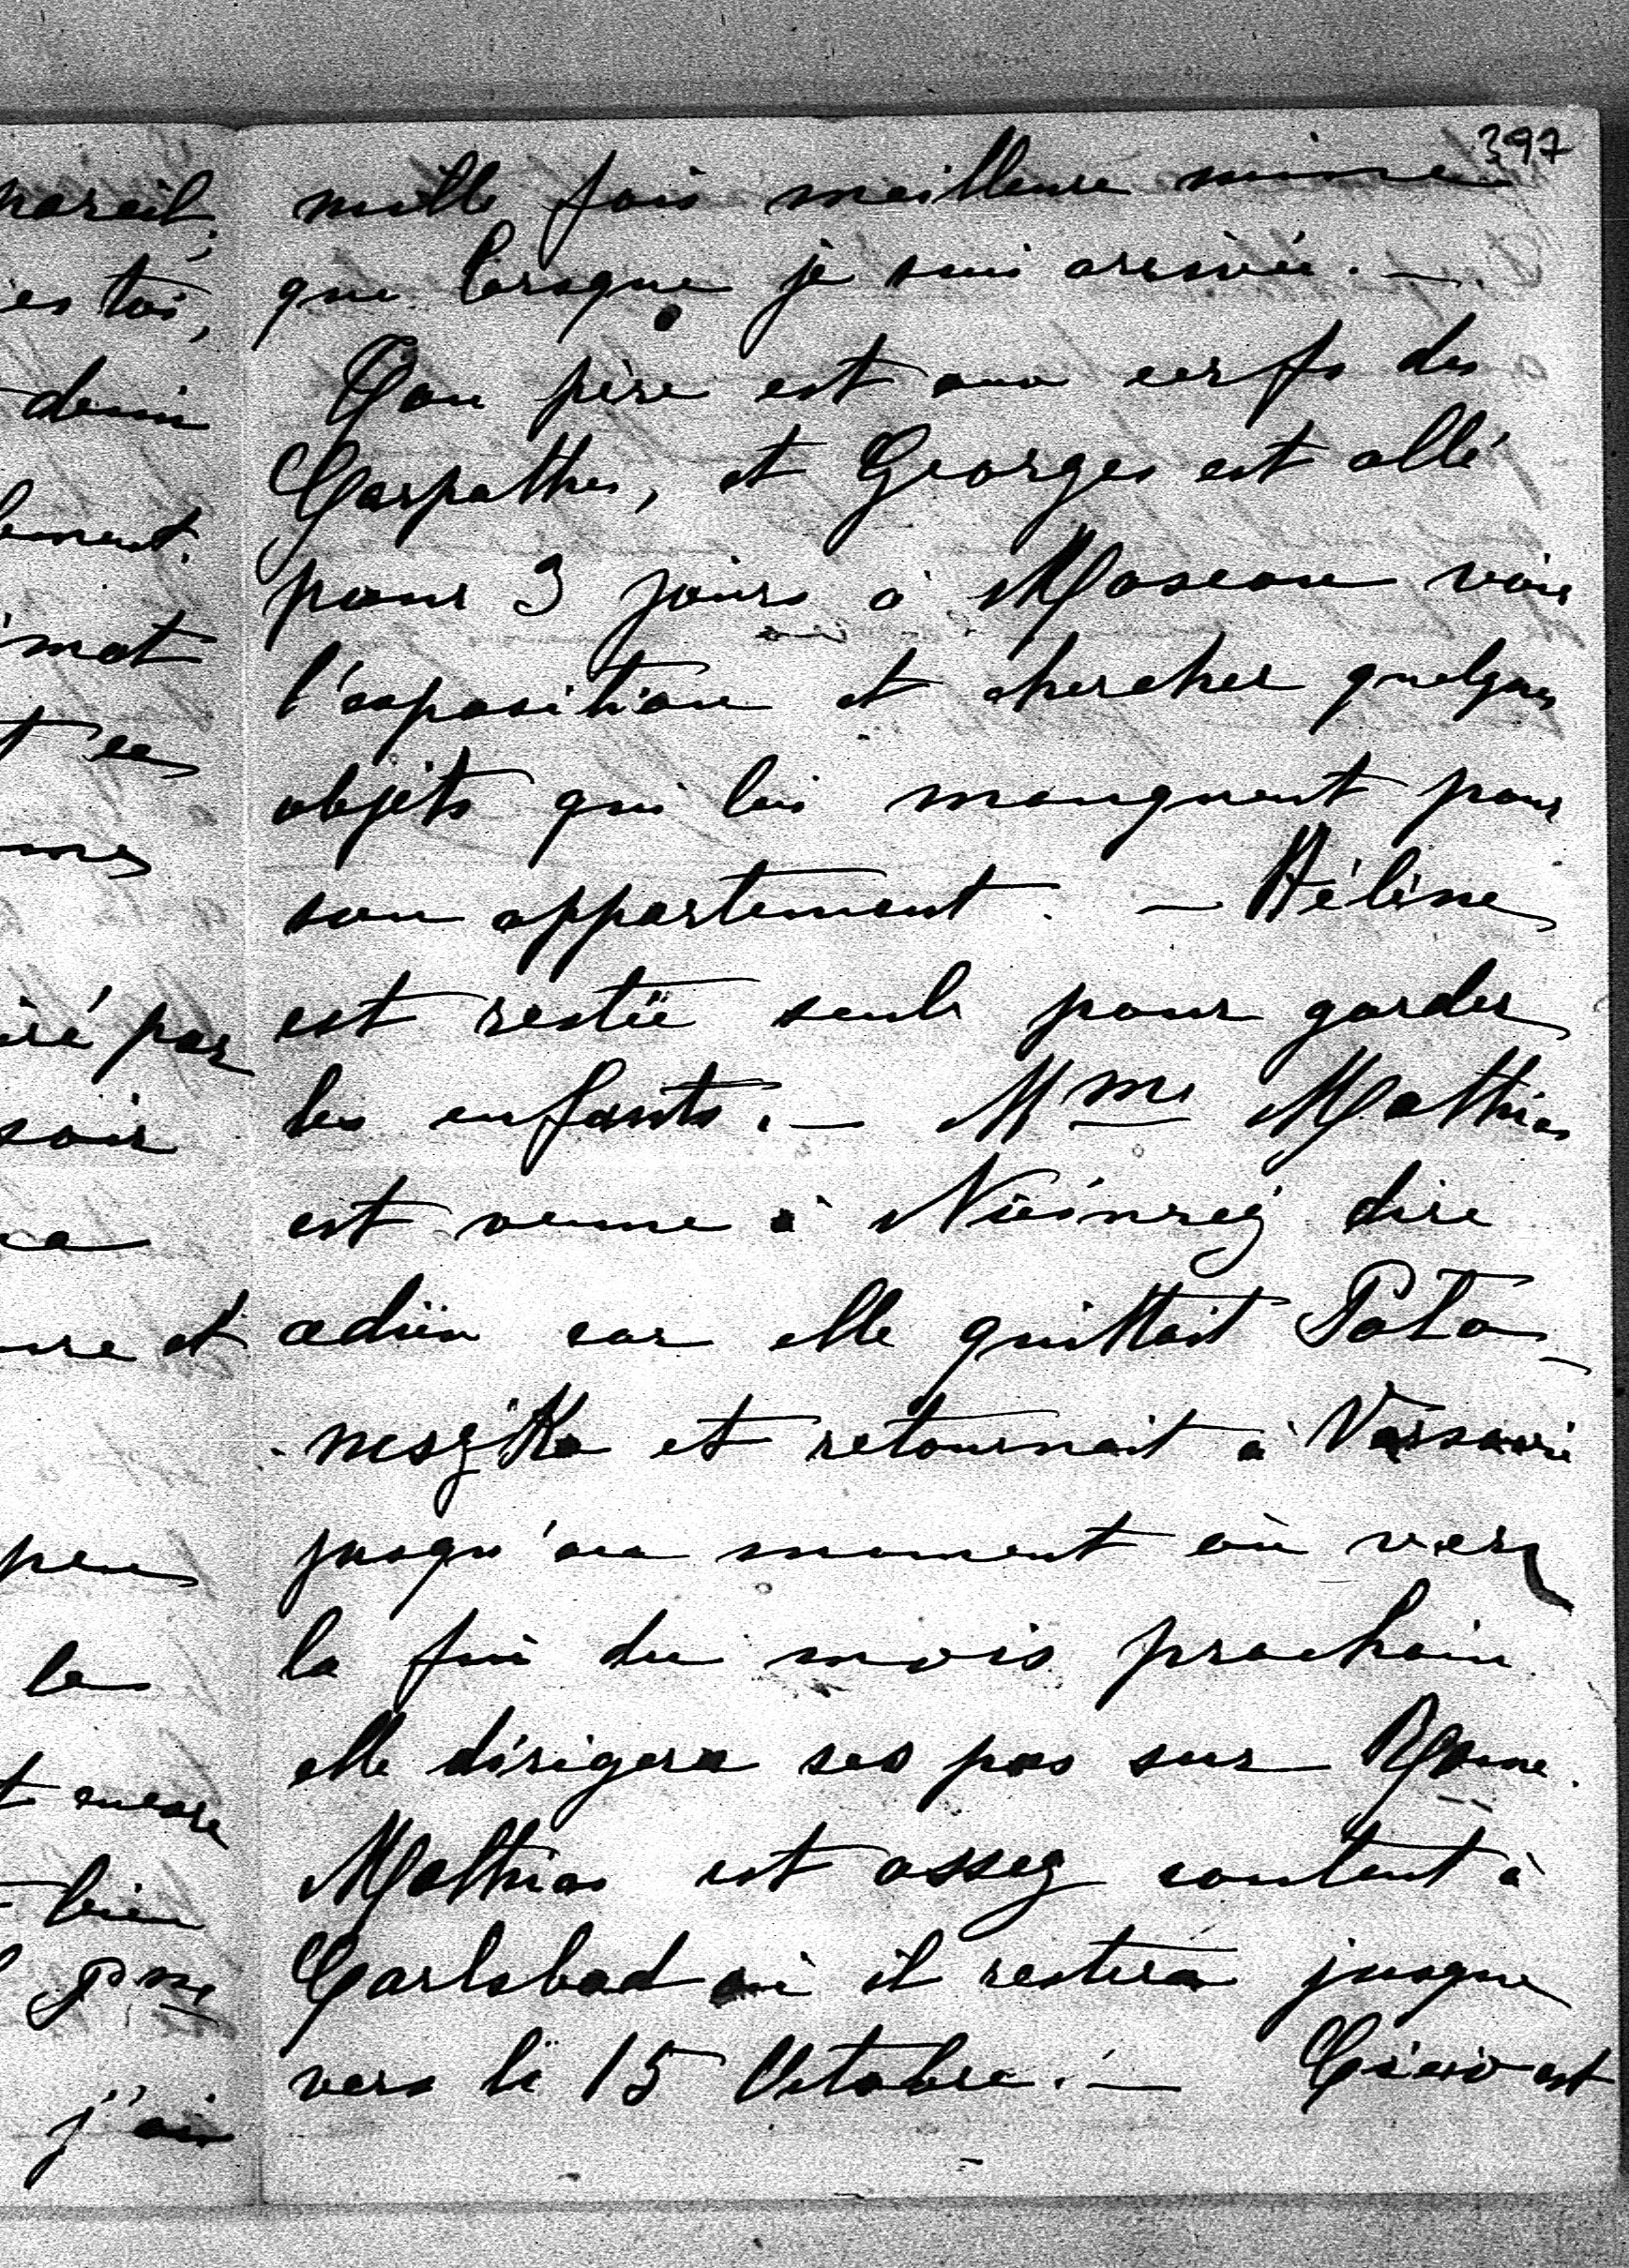 397
mille fois meilleure mine
que lorsque je suis arrivée. —
Ton père est aux cerfs des
Carpathes, et Georges est allé
pour 3 jours à Moscou voir
l'exposition et chercher quelques
objets qui lui manquent pour
son appartement. — Hélène
est restée seule pour garder
les enfants. — Mme Mathias
est venue à dire
adieu car elle quittait Poto-
neszka et retournait à Varsovie
jusqu'au moment où vers
la fin du mois prochain
elle dirigera ses pas sur Rome.
Mathias est assez content à
Carlsbad où il restera jusque
vers le 15 Octobre. — est
pareil,
es toi,
demi
lement.
mot
t en
mes
iré par
soir
ure et
peu
le
t encore
bien
Pme
j'ai